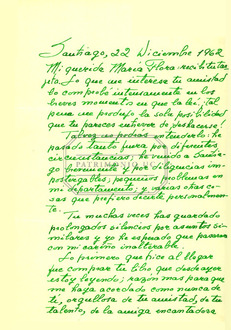 Santiago, 22 Diciembre 1962
Mi querida María Flora: recibí tu tar
jeta. Lo que me interesa tu amistad
lo comprobé intensamente en los
breves momentos en que la leí; tal
pena me produjo la sola posibilidad
que tú pareces entrever de ¡deshacerse!
Talvez no podías entenderlo: he
pasado tanto fuera por diferentes
circunstancias; he venido a Santia
go brevemente y por diligencias im
postergables; pequeños problemas en
mi departamento; y varias otras co
sas que prefiero decirte personalmen
te.
Tú muchas veces has guardado
prolongados silencios por asuntos si
milares y yo he esperado que pasaran
con mi cariño inalterable.
Lo primero que hice al llegar
fue comprar tu libro que desde ayer
estoy leyendo; razón mas para que
me haya acordado como nunca de
ti, orgullosa de tu amistad, de tu
talento, de la amiga encantadora
PATRIMONIO